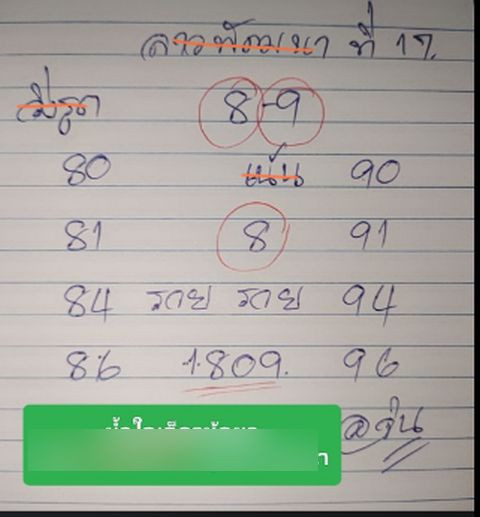 ลาวพัฒนา ที่ 17.
มีรูด 8-9
80 เน้น 90
81 8 91
84 รวย รวย 94
86 1.809. 96